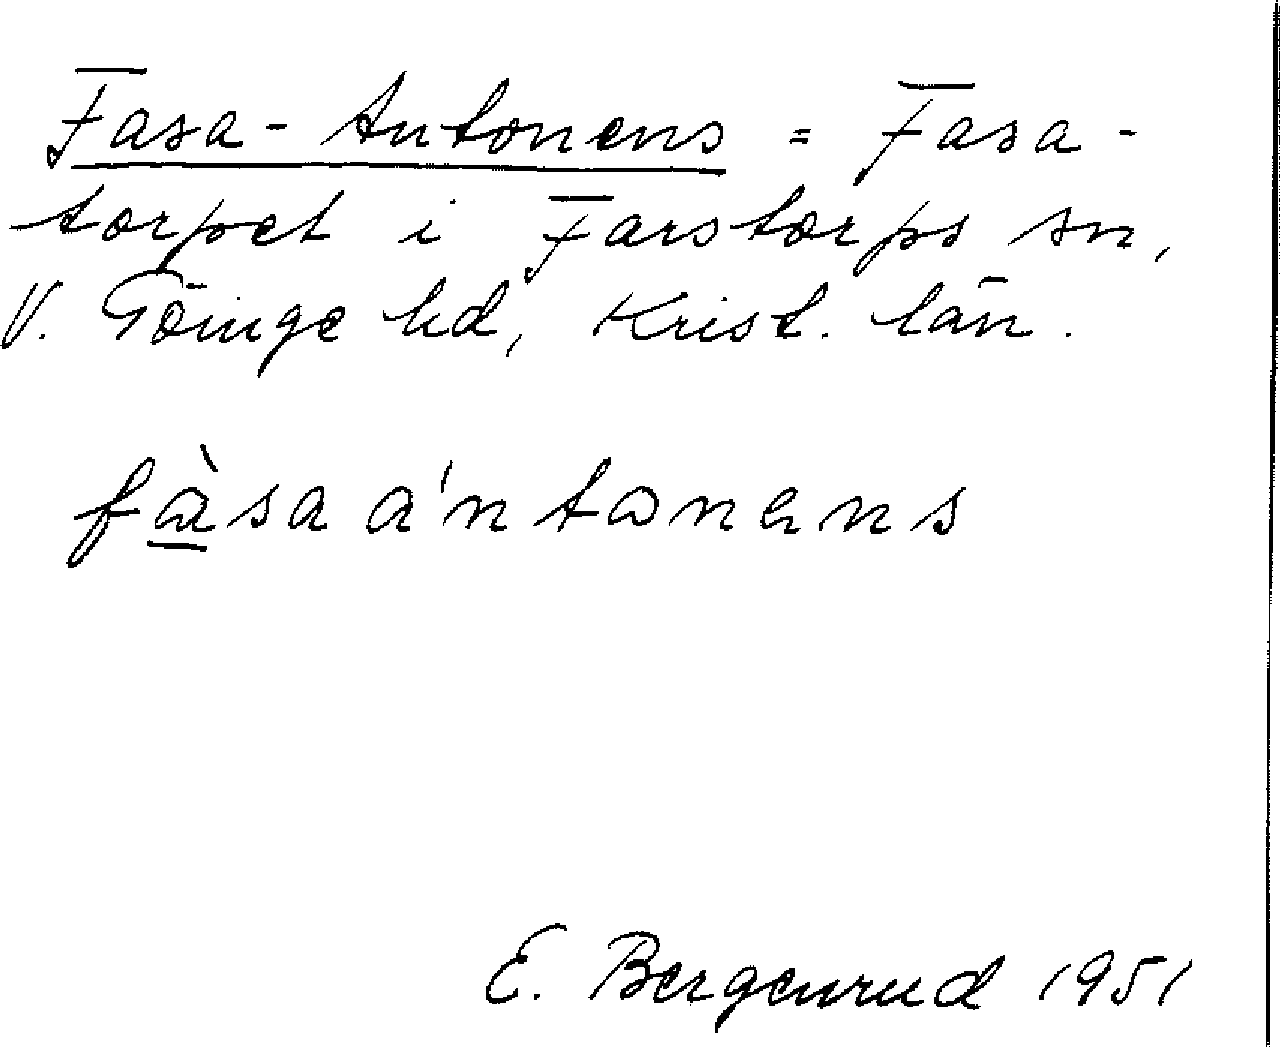 Fasa-Antonens = Fasa-
torpet i Farstorps sn,
V. Göinge hd, Krist. län.
fàsa ántonəns
E. Bergenrud 1951